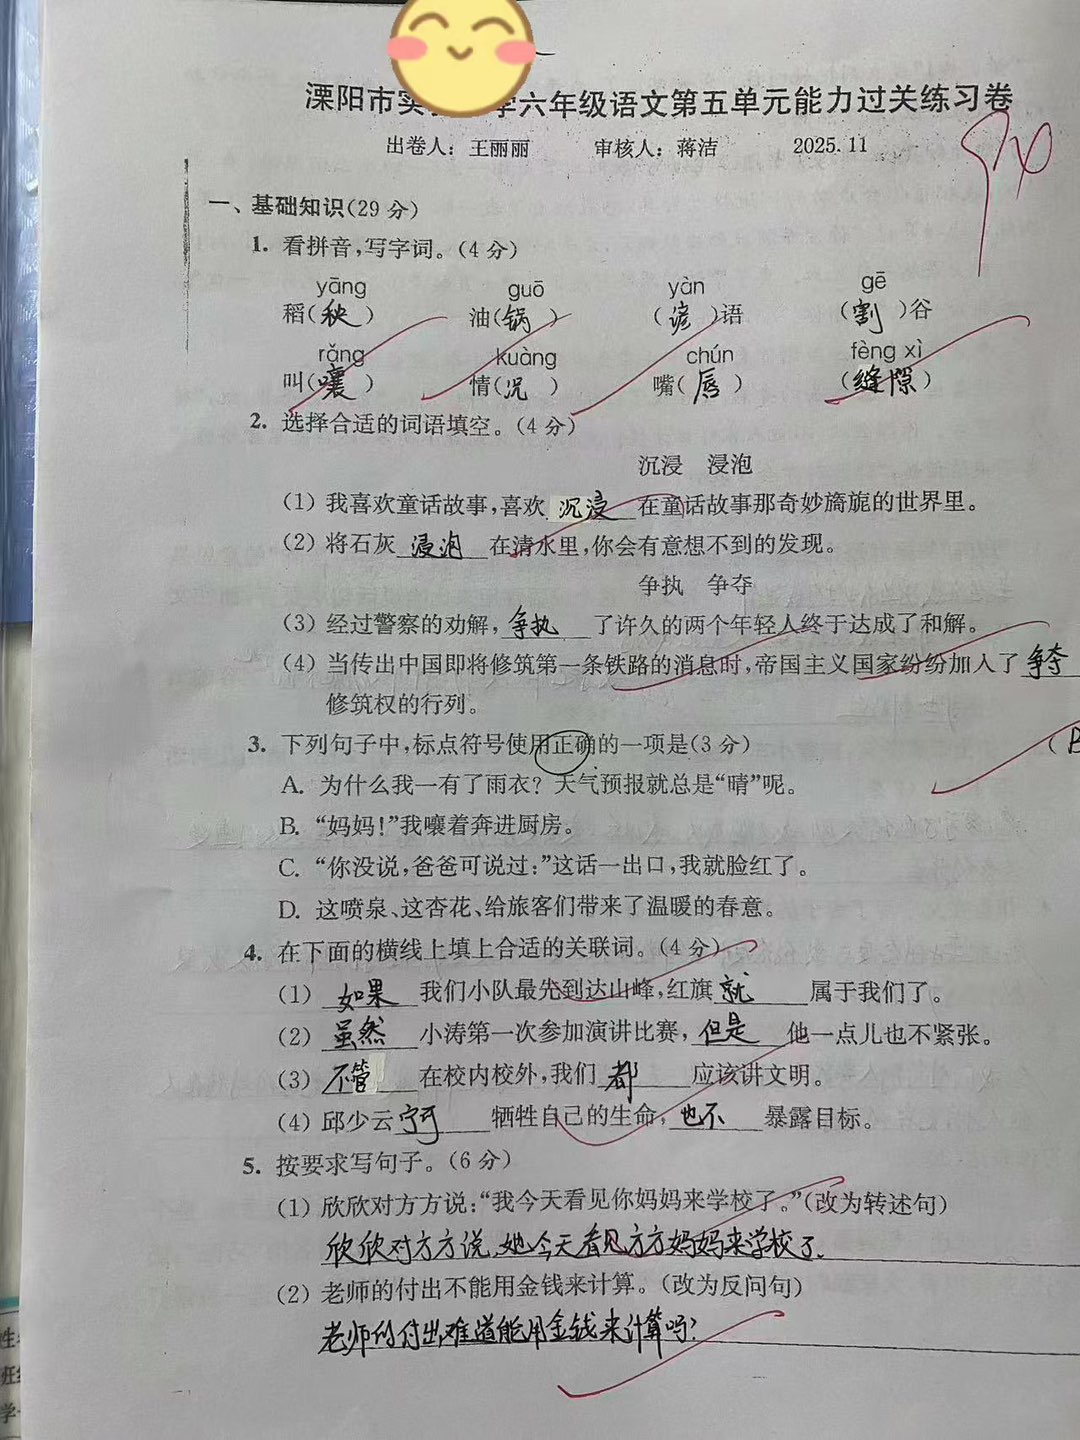 溧阳市实 学六年级语文第五单元能力过关练习卷
出卷人：王丽丽 审核人：蒋洁 2025.11
一、基础知识(29分)
1. 看拼音,写字词。(4分)
yāng guō yàn gē
稻(秧) 油(锅) (谚)语 (割)谷
rǎng kuàng chún fèng xì
叫(嚷) 情(况) 嘴(唇) (缝隙)
2. 选择合适的词语填空。(4分)
沉浸 浸泡
(1) 我喜欢童话故事,喜欢 沉浸 在童话故事那奇妙旖旎的世界里。
(2) 将石灰 浸泡 在清水里,你会有意想不到的发现。
争执 争夺
(3) 经过警察的劝解, 争执 了许久的两个年轻人终于达成了和解。
(4) 当传出中国即将修筑第一条铁路的消息时,帝国主义国家纷纷加入了 争夺
修筑权的行列。
3. 下列句子中,标点符号使用正确的一项是(3分) (B
A. 为什么我一有了雨衣？天气预报就总是“晴”呢。
B. “妈妈！”我嚷着奔进厨房。
C. “你没说,爸爸可说过:”这话一出口,我就脸红了。
D. 这喷泉、这杏花、给旅客们带来了温暖的春意。
4. 在下面的横线上填上合适的关联词。(4分)
(1) 如果 我们小队最先到达山峰,红旗 就 属于我们了。
(2) 虽然 小涛第一次参加演讲比赛, 但是 他一点儿也不紧张。
(3) 不管 在校内校外,我们 都 应该讲文明。
(4) 邱少云 宁可 牺牲自己的生命, 也不 暴露目标。
5. 按要求写句子。(6分)
(1) 欣欣对方方说:“我今天看见你妈妈来学校了。”(改为转述句)
欣欣对方方说,她今天看见方方妈妈来学校了.
(2) 老师的付出不能用金钱来计算。(改为反问句)
老师的付出难道能用金钱来计算吗?